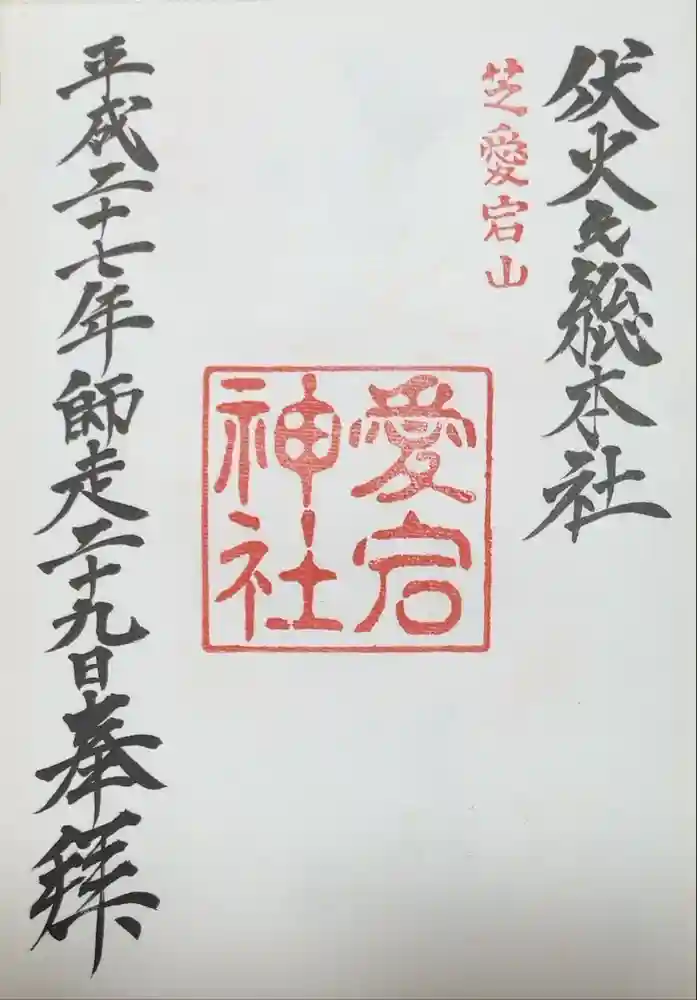 伏火之総本社
芝愛宕山
愛宕
神社
平成二十七年師走二十九日奉拜